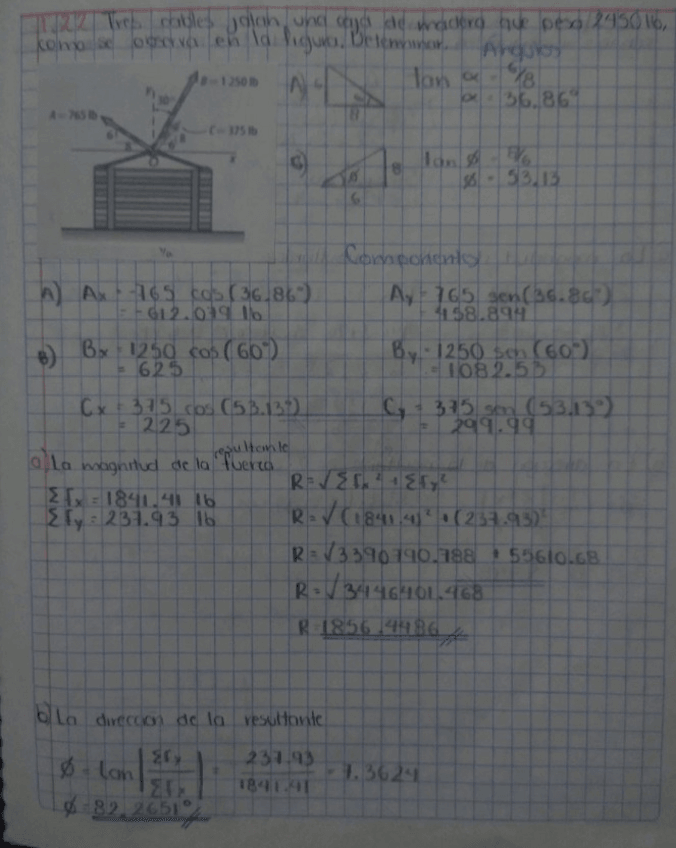 1.22 Tres cables jalan una caja de madera que pesa 2450 lb,
como se observa en la figura. Determinar.
Ángulos
B = 1 250 lb
A = 765 lb
C = 375 lb
30°
A) 6 8
tan α = 6/8
α = 36.86°
C) 8 6
tan Ø = 8/6
Ø = 53.13
Componentes
A) Ax = -765 cos(36.86°)
= -612.079 lb
Ay = 765 sen(36.86°)
= 458.894
B) Bx = 1250 cos(60°)
= 625
By = 1250 sen(60°)
= 1082.53
Cx = 375 cos(53.13°)
= 225
Cy = 375 sen(53.13°)
= 299.99
a) La magnitud de la resultante fuerza
ΣFx = 1841.41 lb
ΣFy = 237.93 lb
R = √ΣFx² + ΣFy²
R = √(1841.4)² + (237.93)²
R = √3390790.788 + 55610.68
R = √3446401.468
R = 1856.4486
b) La direccion de la resultante
Ø = tan |ΣFy/ΣFx| = 237.93/1841.41 = 7.3624
Ø = 82.2651°